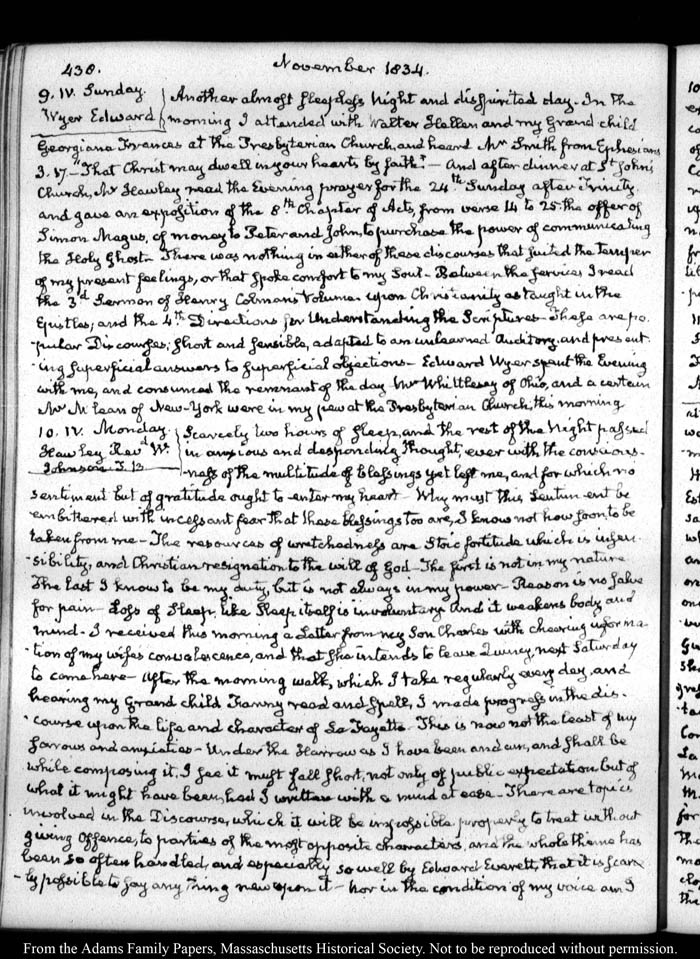 438.
November 1834.
9. IV. Sunday.
Wyer Edward
Another almost sleepless Night and dispirited day. In the
morning I attended with Walter Hellen and my Grand child
Georgiana Frances at the Presbyterian Church, and heard Mr Smith from Ephesians
3. 17. "That Christ may dwell in your hearts by faith:" — And after dinner at St. John's
Church, Mr Hawley read the Evening prayer for the 24th Sunday after Trinity.
and gave an exposition of the 8th Chapter of Acts, from verse 14 to 25. the offer of
Simon Magus, of money to Peter and John, to purchase the power of communicating
the Holy Ghost — There was nothing in either of these discourses that suited the temper
of my present feelings, or that spoke comfort to my Soul — Between the services I read
the 3d Sermon of Henry Colman's Volume — upon Christianity as taught in the
Epistles; and the 4th Directions for Understanding the Scriptures — These are po-
pular Discourses; short and sensible, adapted to an unlearned Auditory, and present-
ing superficial answers to superficial objections — Edward Wyer spent the Evening
with me, and consumed the remnant of the day. Mr Whittlesey of Ohio, and a certain
Mr McLean of New-York were in my pew at the Presbyterian Church, this morning
10. IV. Monday.
Hawley Revd W.
Johnson
Scarcely two hours of sleep, and the rest of the Night passed
in anxious and desponding thought, ever with the conscious-
ness of the multitude of blessings yet left me, and for which no
sentiment but of gratitude ought to enter my heart — Why must this sentiment be
embittered with incessant fear that these blessings too are, I know not how soon, to be
taken from me — The resources of wretchedness are Stoic fortitude which is insen-
sibility, and Christian resignation to the will of God — The first is not in my nature
The last I know to be my duty, but is not always in my power — Reason is no salve
for pain — Loss of Sleep, like Sleep itself is involuntary and it weakens body and
mind — I received this morning a Letter from my Son Charles with cheering informa-
tion of my wife's convalescence, and that she intends to leave Quincy, next Saturday
to come here — After the morning walk, which I take regularly every day, and
hearing my Grand child Fanny read and spell, I made progress in the dis-
course upon the life and character of La Fayette — This is now not the least of my
sorrows and anxieties — Under the Harrow as I have been and am, and shall be
while composing it, I see it must fall short, not only of public expectation but of
what it might have been, had I written with a mind at ease — There are topics
involved in the Discourse, which it will be impossible properly to treat without
giving Offence, to parties of the most opposite characters, and the whole theme has
been so often handled, and especially so well by Edward Everett, that it is scarce-
ly possible to say any thing new upon it — nor in the condition of my voice am I
From the Adams Family Papers, Massachusetts Historical Society. Not to be reproduced without permission.